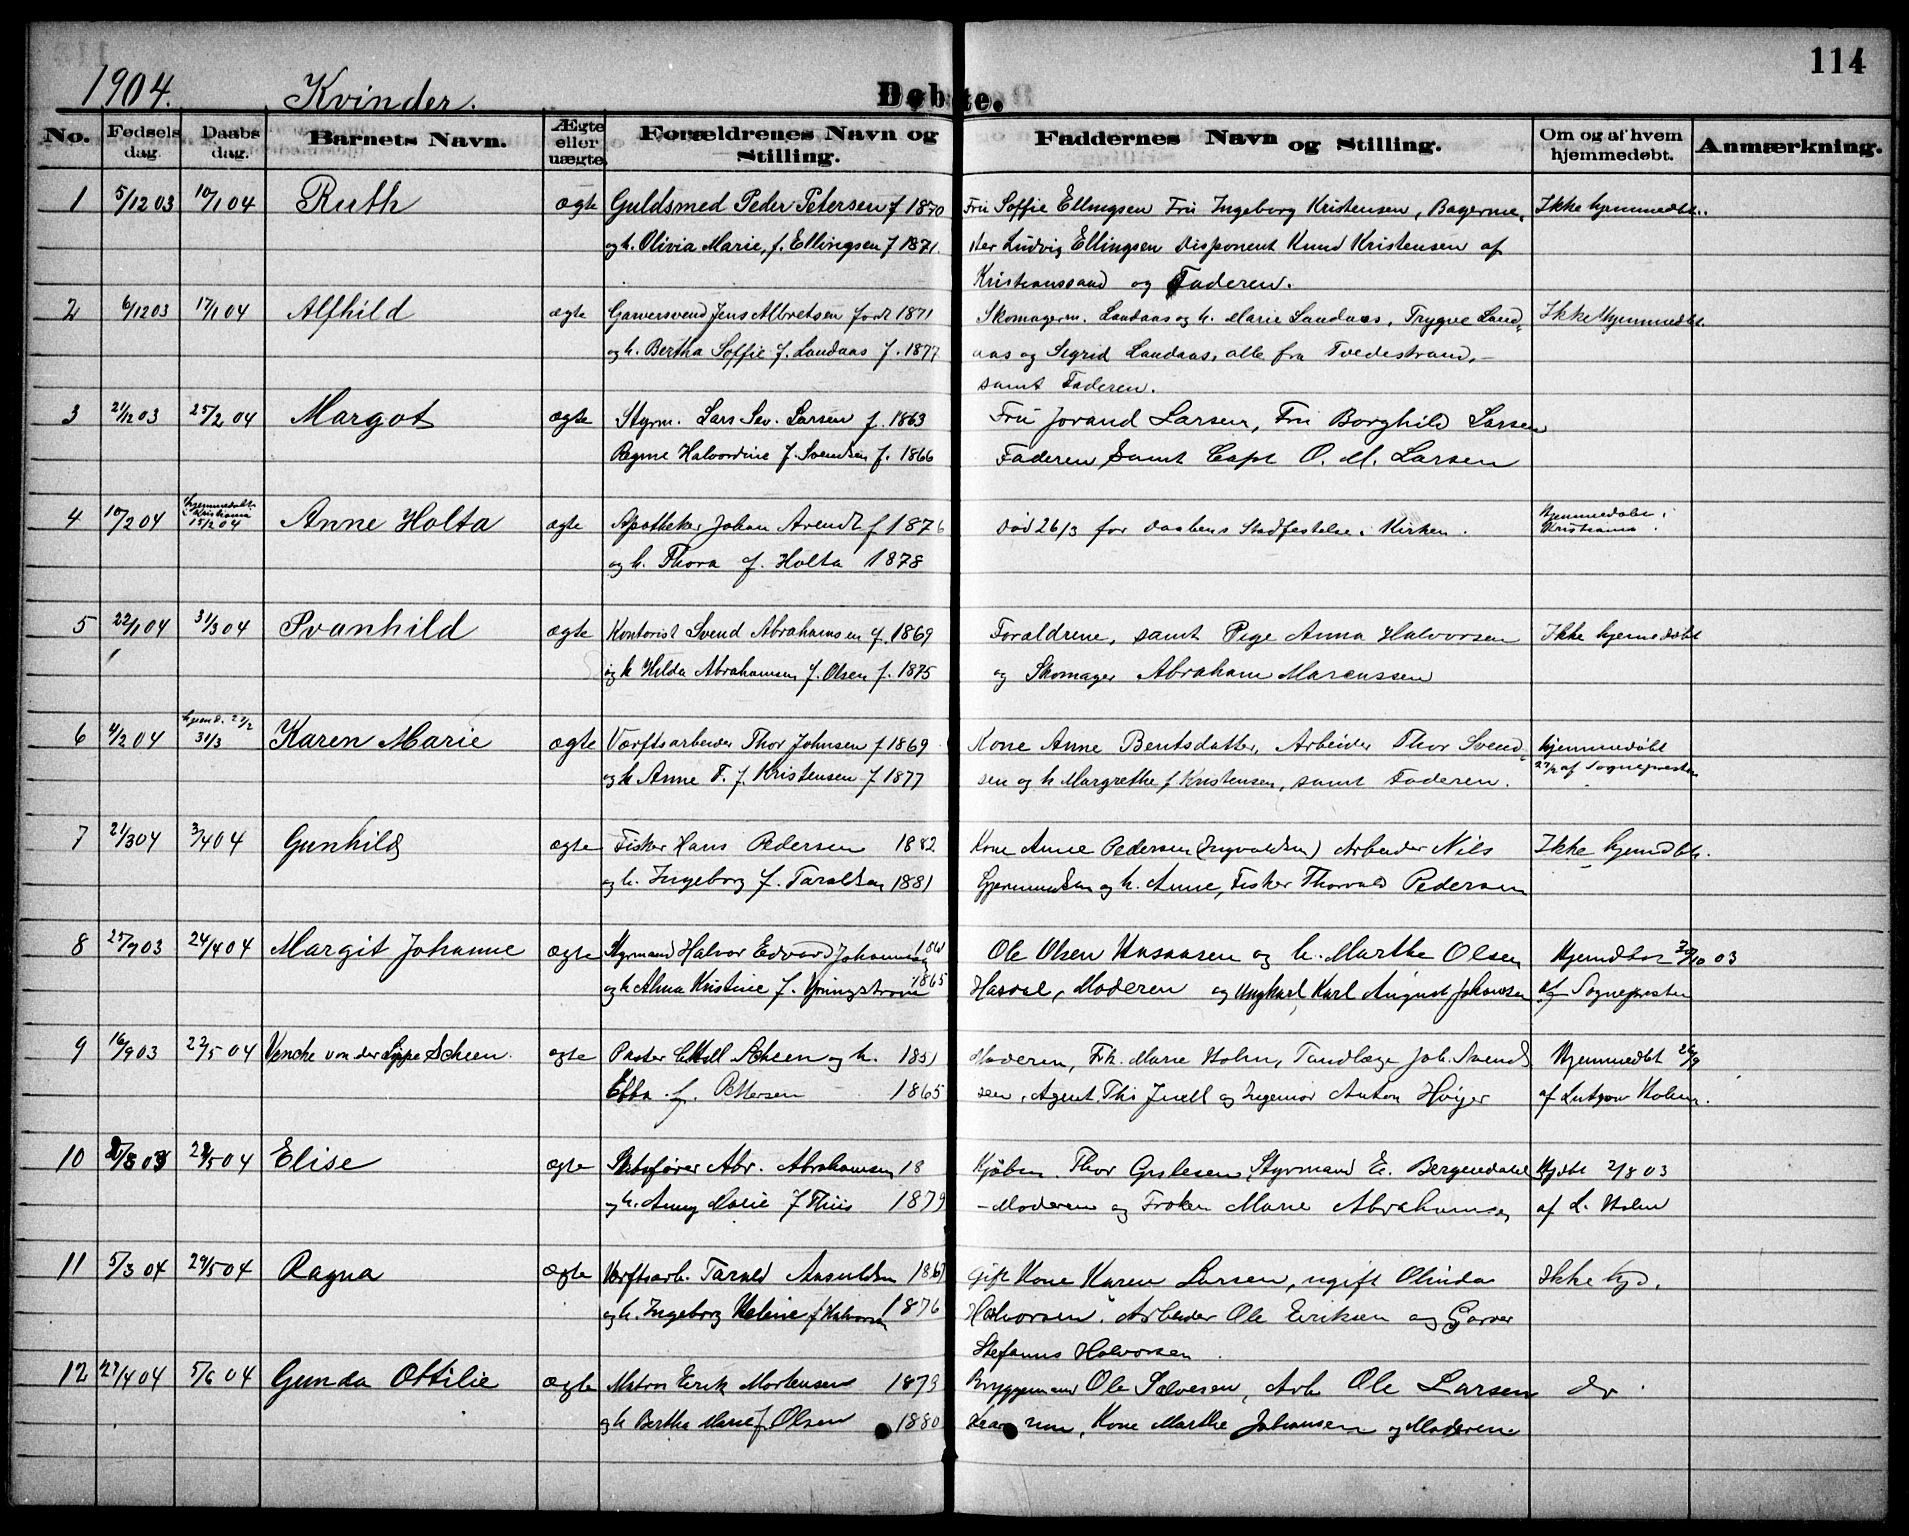 114
1904. Kvinder. Døbte.
No. Fødselsdag. Daabsdag. Barnets Navn. Ægte eller uægte. Forældrenes Navn og Stilling. Faddernes Navn og Stilling. Om og af hvem hjemmedøbt. Anmærkning.
1 5/12 03 10/1 04 Ruth ægte Guldsmed Peder Petersen f 1870 Fru Soffie Ellingsen Fru Ingeborg Kristensen, Bagerme- Ikke hjemmedbt.
og h. Olivia Marie, f. Ellingsen f 1871. ster Ludvig Ellingsen Disponent Knud Kristensen af
Kristianssand og Faderen.
2 6/12 03 17/1 04 Alfhild ægte Garversvend Jens Albretsen født 1871 Skomagerm. Landaas og h. Marie Landaas, Trygve Land- Ikke hjemmedbt.
og h. Bertha Soffie f. Landaas f. 1877 aas og Sigrid Landaas, alle fra Tvedestrand,
samt Faderen.
3 21/12 03 25/2 04 Margot ægte Styrm. Lars Sev. Larsen f. 1863 Fru Jorand Larsen, Fru Borghild Larsen
Ragne Halvordine f. Svendsen f. 1866 Faderen Samt Capt O. M. Larsen
4 10/2 04 hjemmedøbt i Kristiania 15/2 04 Anne Holta ægte Apotheker Johan Arendt f 1876 Død 26/3 før Daabens Stadfestelse i Kirken. hjemmedøbt i Kristiania.
og h. Thora f. Holta 1878
5 22/1 04 31/3 04 Svanhild ægte Kontorist Svend Abrahamsen f. 1869 Forældrene, samt Pige Anna Halvorsen Ikke hjemmedøbt
og h Hilda Abrahamsen f. Olsen f. 1875 og Skomager Abraham Marcussen
6 4/2 04 hjemd. 27/2 31/3 Karen Marie ægte Værftsarbeider Thor Johnsen f 1869 Kone Anne Bentsdatter, Arbeider Thor Svend- hjemmedøbt
og h Anne T. f. Kristensen f. 1877 sen og h Margrethe f Kristensen, samt Faderen. 27/2 af Sognepresten
7 21/3 04 3/4 04 Gunhild ægte Fisker Hans Pedersen 1882 Kone Anne Pedersen (Ingvaldsen) Arbeider Nils Ikke hjemdbt.
og h. Ingeborg f. Taraldsen 1881 Gjermundsen og h. Anne, Fisker Thorvald Pedersen
8 25/9 03 24/4 04 Margit Johanne ægte Styrmand Halvor Edvard Johannesen Ole Olsen og h. Marthe Olsen Hjemdbt 30/10 03
og h Alma Kristine f. 1865 Moderen og Ungkarl Karl August Johansen af Sognepresten
9 16/9 03 22/5 04 Venche von der Lippe Scheen. ægte Pastor Scheen og h. 1851 Moderen, Frk. Marie Holm, Tandlæge Joh. Svend- Hjemmedbt 26/9
Ebba f. Pettersen 1865 sen, Agent Ths Juell og Ingeniør Anton Høyer af Holm.
10 2/8 03 29/5 04 Elise ægte Skibsfører Abr. Abrahamsen 18 Kjøbm. Thor Styrmand E. Bergendahl Hjdbt 2/8 03
og h. Anny Marie f Thiis 1879 Moderen og Frøken Marie Abrahamsen af L. Holm
11 5/3 04 29/5 04 Ragna ægte Værftsarb. Tarald Aasuldsen 1867 Gift Kone Karen Larsen, ugift Olinda Ikke hjd.
og h. Ingeborg Helene f Halvorsen 1876 Halvorsen. Arbeider Ole Eriksen og Garver
Stefanus Halvorsen.
12 27/4 04 5/6 04 Gunda Ottilie ægte Matros Erik Mortensen 1879 Bryggemand Ole Salvesen, Arb Ole Larsen do
og h Bertha Marie f Olsen 1880 Kone Marthe Johansen og Moderen